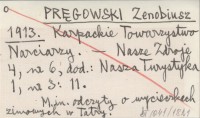 PRĘGOWSKI Zenobiusz
1913. Karpackie Towarzystwo
Narciarzy. — Nasze Zdroje
4, nr 6; dod.: Nasza Turystyka
1, nr 3: 11.
M.in. odczyty o wycieczkach
zimowych w Tatry.